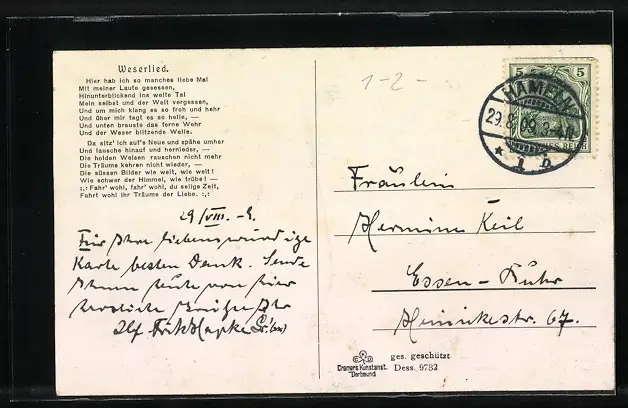 Weserlied.
Hier hab ich so manches liebe Mal
Mit meiner Laute gesessen,
Hinunterblickend ins weite Tal
Mein selbst und der Welt vergessen,
Und um mich klang es so froh und hehr
Und über mir tagt es so helle, —
Und unten brauste das ferne Wehr
Und der Weser blitzende Welle.
Da sitz' ich auf's Neue und spähe umher
Und lausche hinauf und hernieder, —
Die holden Weisen rauschen nicht mehr
Die Träume kehren nicht wieder, —
Die süssen Bilder wie weit, wie weit!
Wie schwer der Himmel, wie trübe! —
:,: Fahr' wohl, fahr' wohl, du selige Zeit,
Fahrt wohl ihr Träume der Liebe. :,:
29/VIII. - 9.
Für Ihre liebenswürdige
Karte besten Dank. Sende
Ihnen heute von hier
herzliche Grüße Ihr
1-2-
5 5
HAMELN
29.8.09.3-4N
DEUTSCHES REICH
* 1 b
Fräulein
Hermine Keil
Essen-Ruhr
67.
Cramers Kunstanst.
Dortmund
ges. geschützt
Dess. 9732